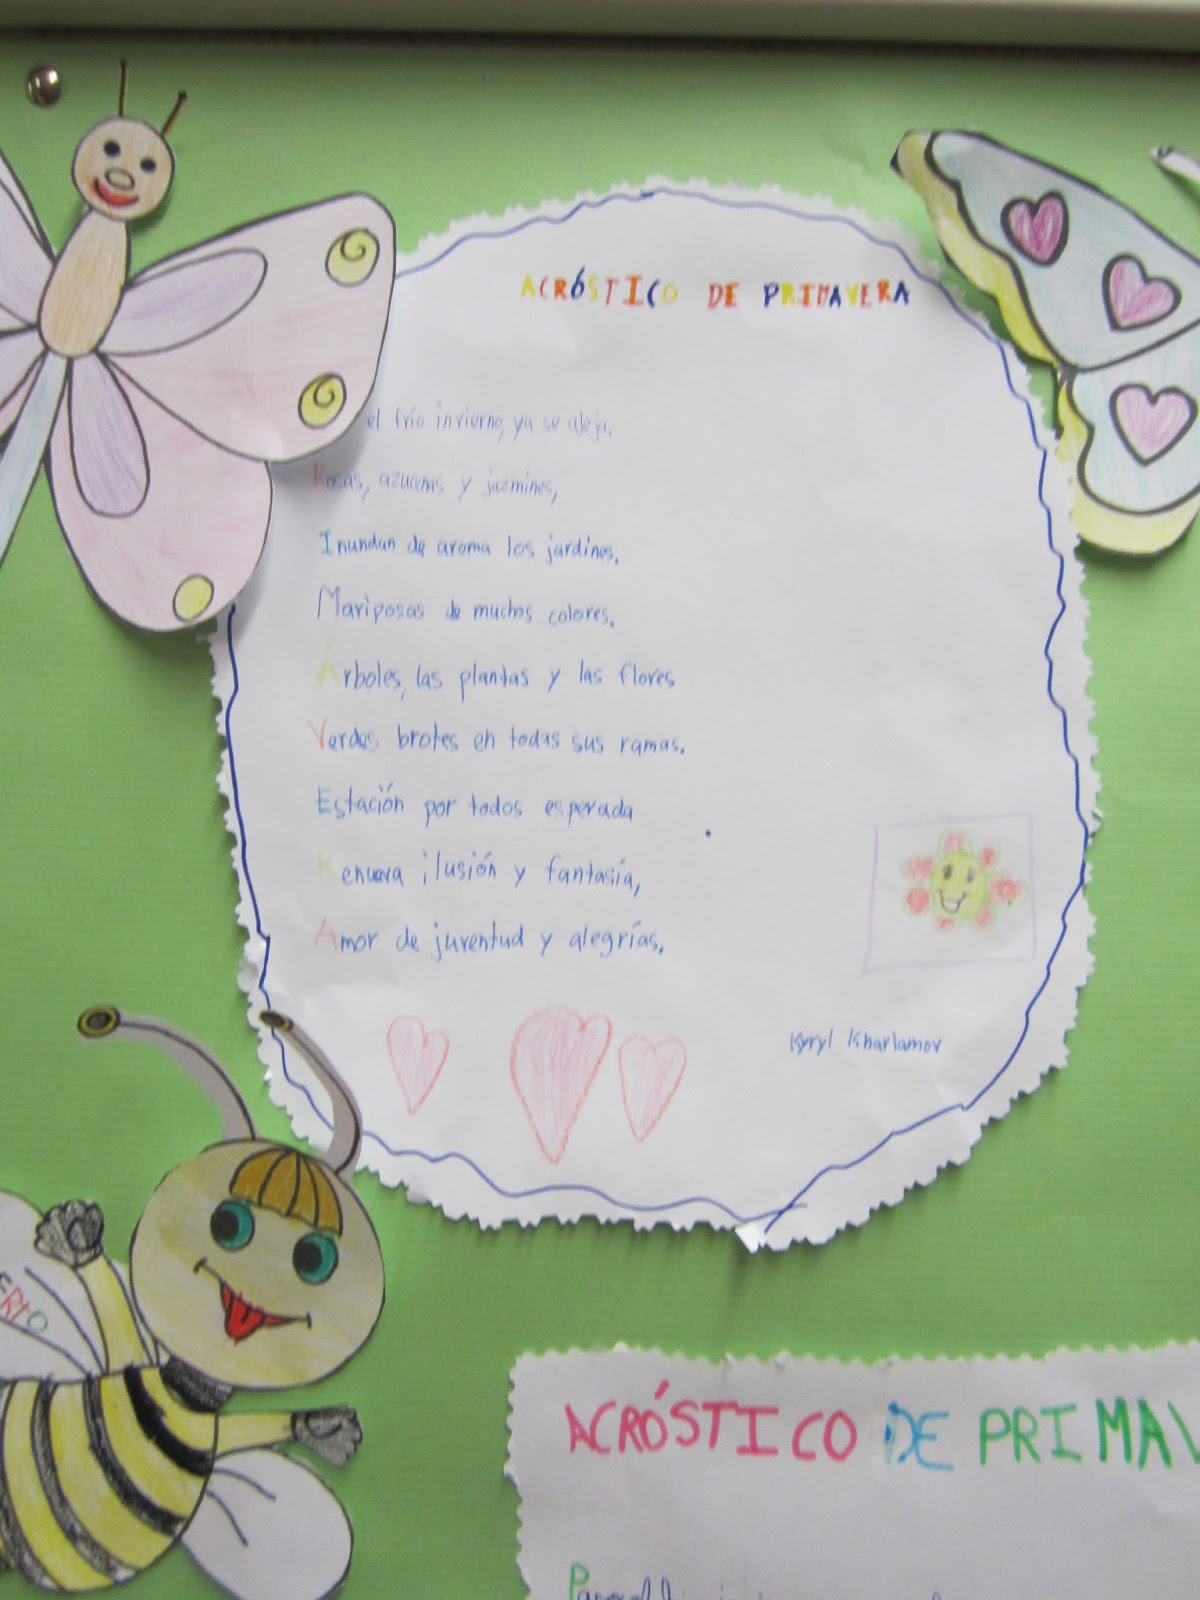 ACRÓSTICO DE PRIMAVERA
el frío invierno, ya se aleja.
Rosas, azucenas y jazmines,
Inundan de aroma los jardines.
Mariposas de muchos colores.
Árboles, las plantas y las flores
Verdes brotes en todas sus ramas.
Estación por todos esperada
Renueva ilusión y fantasía,
Amor de juventud y alegrías.
Kyryl Kharlamov
ERTO
ACRÓSTICO DE PRIMAV